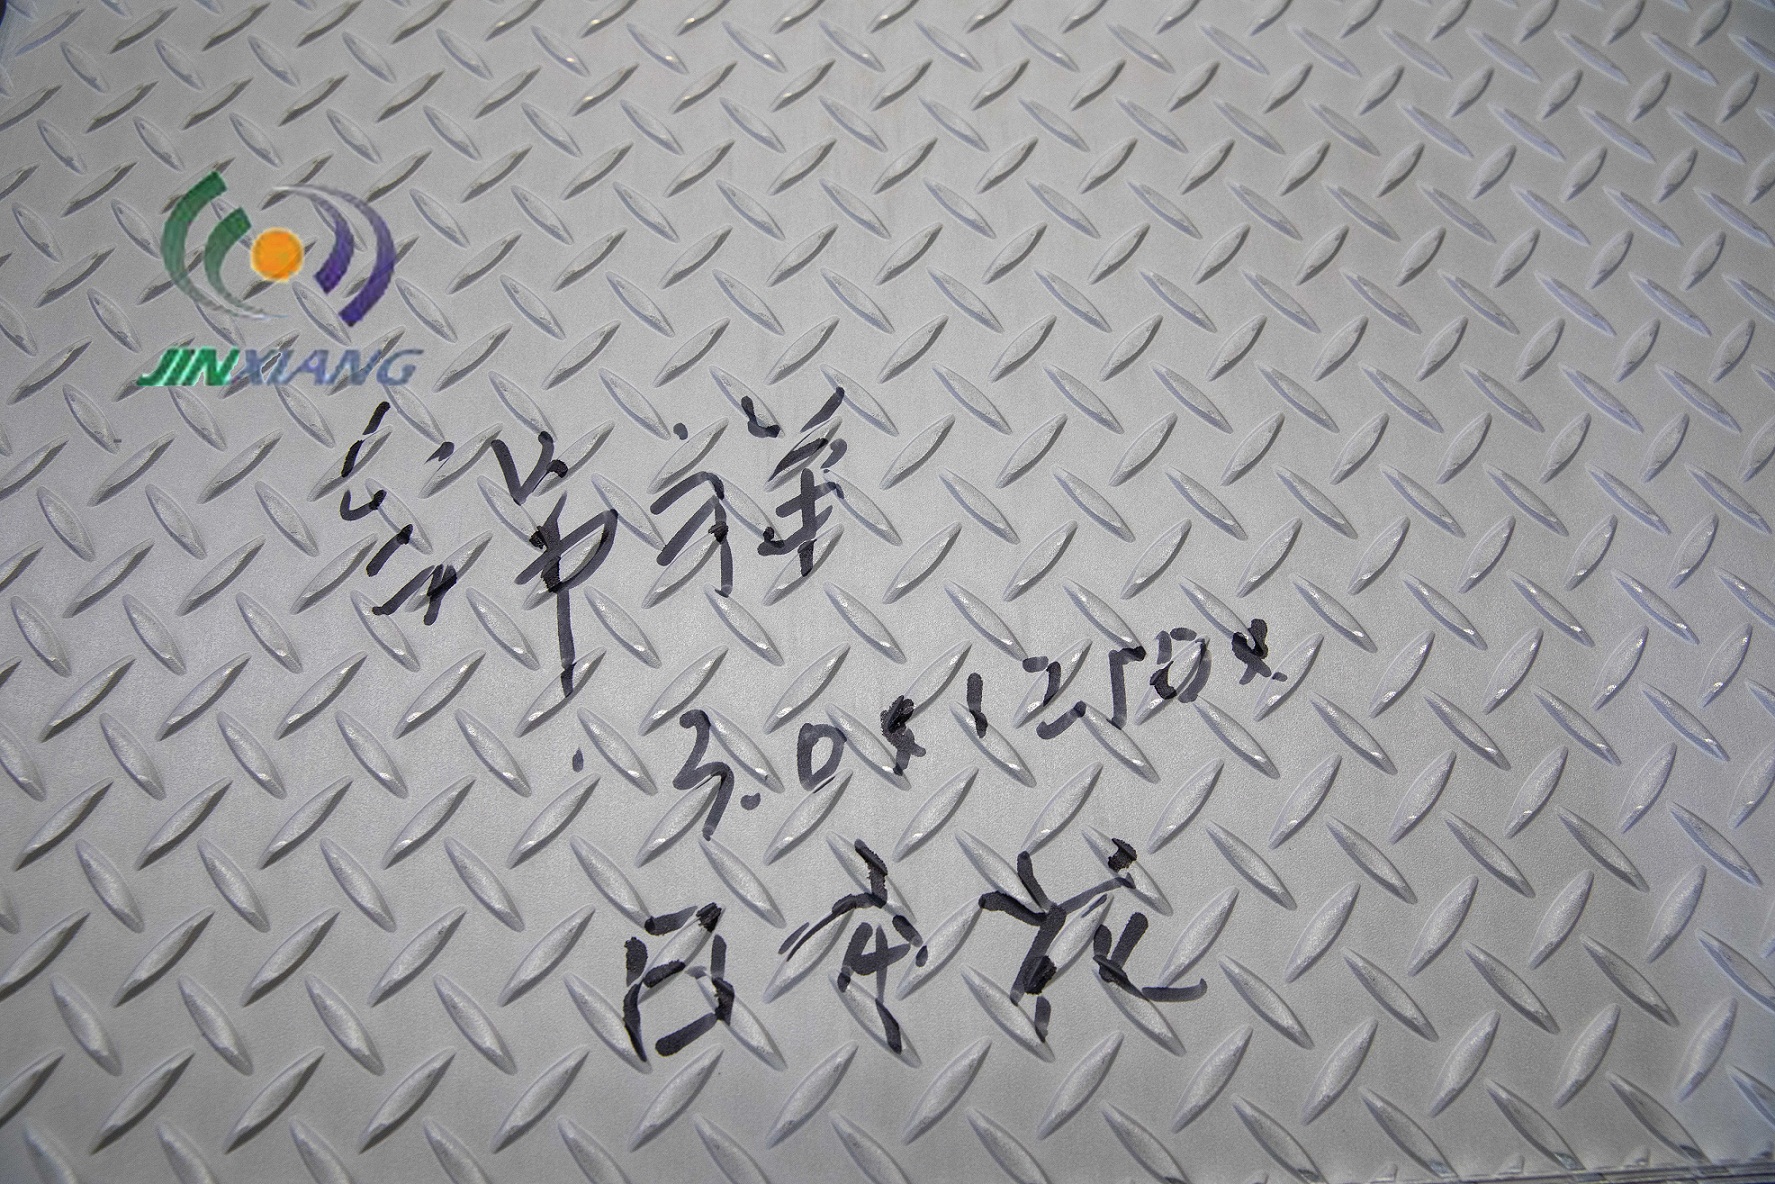 JINXIANG
锦祥
3.0×1250×
日本花